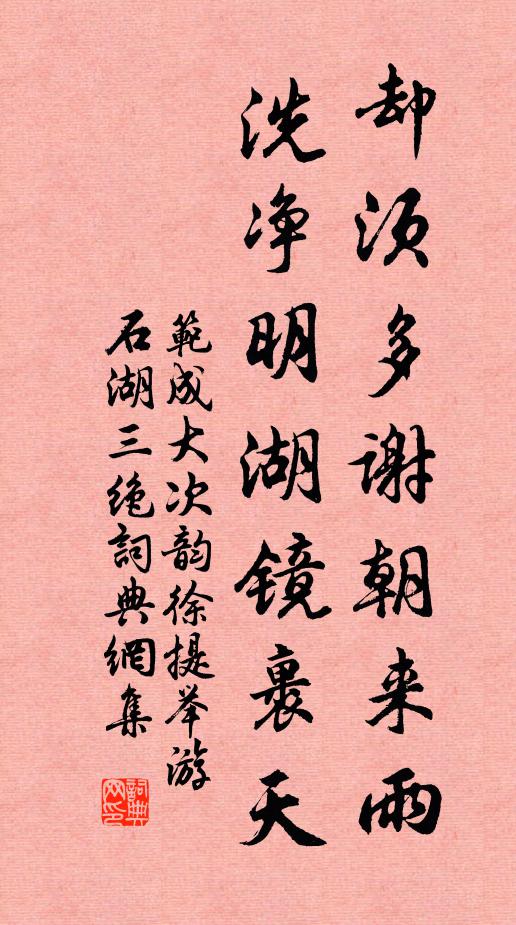 却须多谢朝来雨
洗净明湖镜裹天
範成大次韵徐提举游
石湖三绝詞典網集
詞典网印